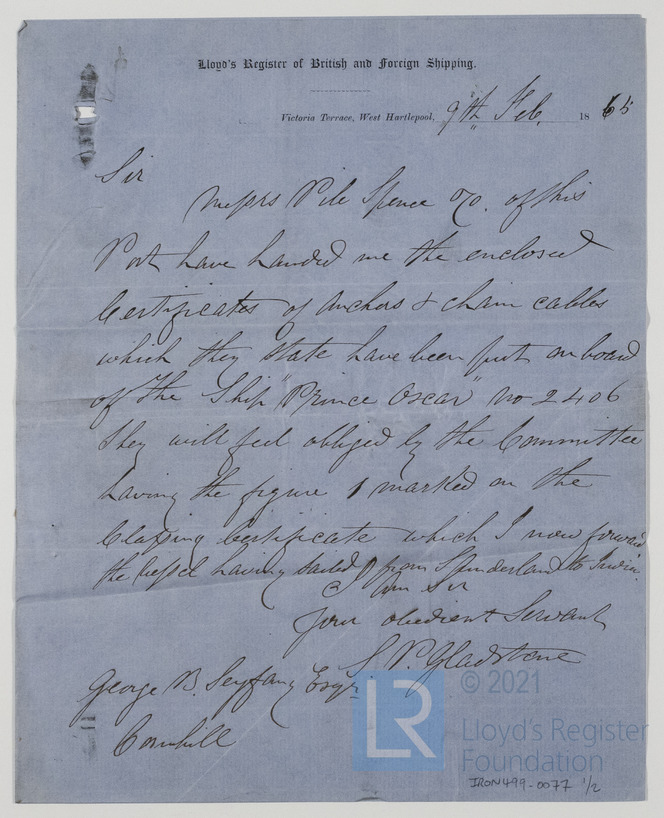 Lloyd's Register of British and Foreign Shipping.
Victoria Terrace, West Hartlepool, 9th Feb. 1865
Sir
Messrs Pile Spence & Co. of this
Port have handed me the enclosed
Certificates of Anchors & chain cables
which they state have been put on board
of the Ship "Prince Oscar" No 2406
They will feel obliged by the Committee
having the figure 1 marked on the
Classing Certificate which I now forward
the vessel having sailed from Sunderland to
I am Sir
Your obedient Servant
Gladstone
George B. Seyfang Esqr.
Cornhill
LR
© 2021
Lloyd's Register
Foundation
IRON499-0077 1/2